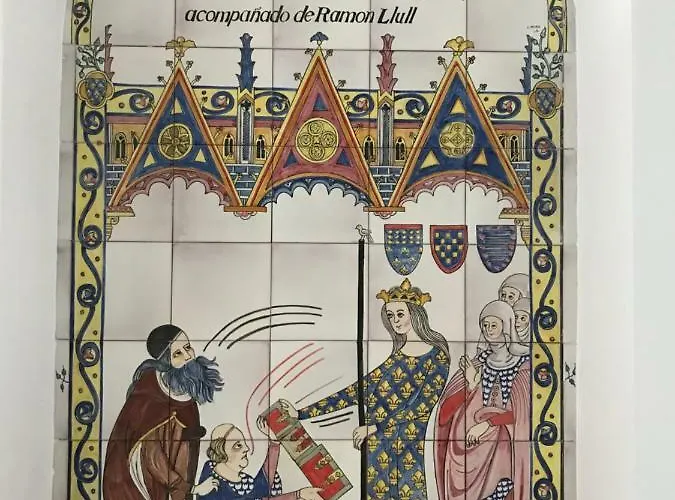 acompañado de Ramon Llull